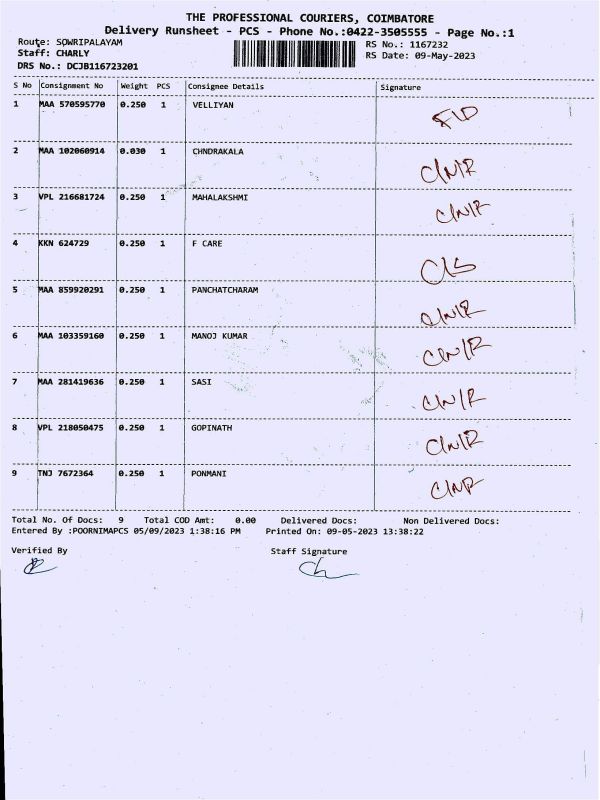 THE PROFESSIONAL COURIERS, COIMBATORE
Delivery Runsheet - PCS - Phone No.:0422-3505555 - Page No.:1
Route: SOWRIPALAYAM RS No.: 1167232
Staff: CHARLY RS Date: 09-May-2023
DRS No.: DCJB116723201
S No Consignment No Weight PCS Consignee Details Signature
1 MAA 570595770 0.250 1 VELLIYAN
2 MAA 102060914 0.030 1 CHNDRAKALA C/N/R
3 VPL 216681724 0.250 1 MAHALAKSHMI C/N/R
4 KKN 624729 0.250 1 F CARE
5 MAA 859920291 0.250 1 PANCHATCHARAM C/N/R
6 MAA 103359160 0.250 1 MANOJ KUMAR C/N/R
7 MAA 281419636 0.250 1 SASI C/N/R
8 VPL 218050475 0.250 1 GOPINATH C/N/R
9 TNJ 7672364 0.250 1 PONMANI C/N/R
Total No. Of Docs: 9 Total COD Amt: 0.00 Delivered Docs: Non Delivered Docs:
Entered By :POORNIMAPCS 05/09/2023 1:38:16 PM Printed On: 09-05-2023 13:38:22
Verified By Staff Signature